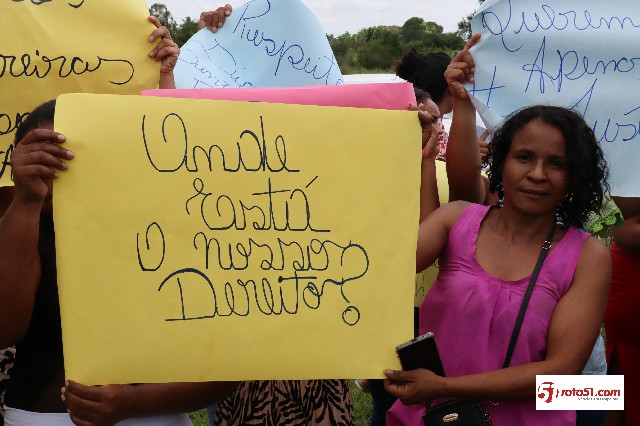 reiras
Respeito
Queremos
Apenas
Justi
Onde
Está
O nosso
Direito?
rota51.com